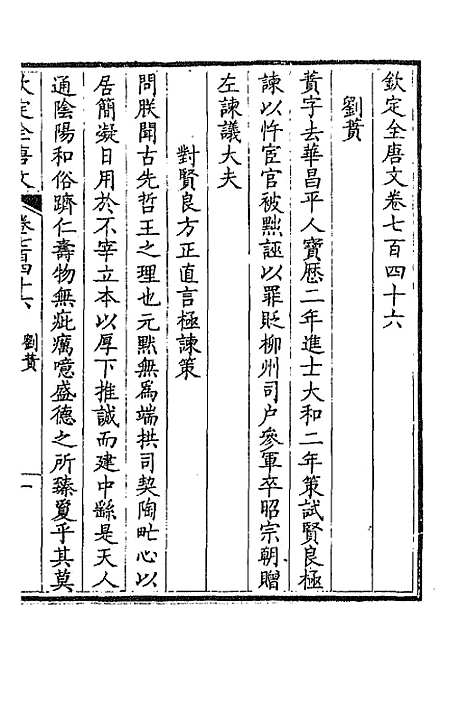 欽定全唐文卷七百四十六
劉蕡
蕡字去華昌平人寶歷二年進士大和二年策試賢良極
諫以忤宦官被黜誣以罪貶柳州司户參軍卒昭宗朝贈
左諫議大夫
對賢良方正直言極諫策
問朕聞古先哲王之理也元默無為端拱司契陶甿心以
居簡凝日用於不宰立本以厚下推誠而建中繇是天人
通陰陽和俗躋仁壽物無疵癘噫盛德之所臻夐乎其莫
欽定全唐文
卷七百四十六
劉蕡
一